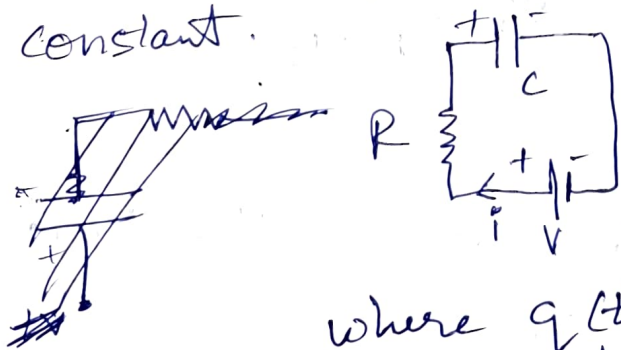 constant.
+ -
C
R
+ -
i V
+
where q(t